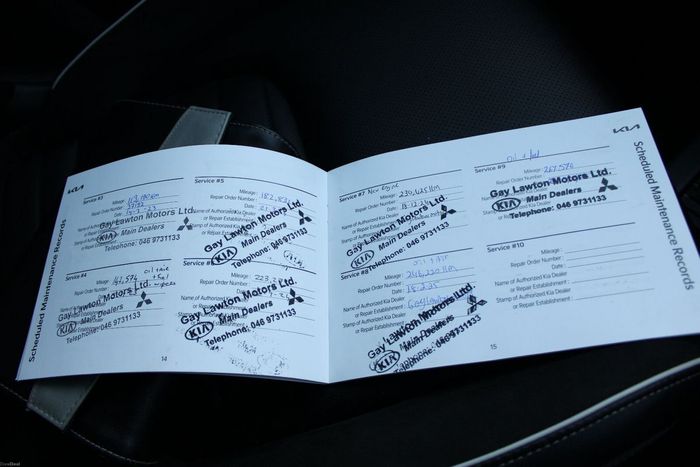 KIA
Scheduled Maintenance Records
Service #3
Mileage :
Repair Order Number :
Date :
Name of Authorized Kia Dealer
or Repair Establishment :
Stamp of Authorized Kia Dealer
or Repair
Gay Lawton Motors Ltd.
KIA Main Dealers
Telephone: 046 9731133
Service #4
oil + Air
Mileage :
+ fuel
Repair Order Number :
Date :
Name of Authorized Kia Dealer
or Repair Establishment
Gay Lawton Motors Ltd.
KIA Main Dealers
Telephone: 046 9731133
Service #5
Mileage :
Repair Order Number :
Date :
Name of Authorized Kia Dealer
or Repair Establishment
Stamp of Authorized Kia Dealer
or Repair
Gay Lawton Motors Ltd.
KIA Main Dealers
Telephone: 046 9731133
Mileage :
Repair Order Number :
Date :
Name of Authorized Kia Dealer
Gay Lawton Motors Ltd.
KIA Main Dealers
Telephone: 046 9731133
14
Service #7 New Engine
Mileage :
Repair Order Number :
Date :
Name of Authorized Kia Dealer
or Repair Establishment
Stamp of Authorized Kia Dealer
Gay Lawton Motors Ltd.
KIA Main Dealers
Telephone: 046 9731133
Service #8
oil + Air
Mileage :
Repair Order Number :
Date :
Name of Authorized Kia Dealer
or Repair Establishment :
Stamp of Authorized Kia Dealer
or Repair Establishment :
Gay Lawton Motors Ltd.
KIA Main Dealers
Telephone: 046 9731133
KIA
Scheduled Maintenance Records
Service #9
Mileage : 267,570
Repair Order Number :
Name of Authorized Kia Dealer
or Repair Establishment
Stamp of Authorized Kia Dealer
or Repair Establishment
Gay Lawton Motors Ltd.
KIA Main Dealers
Telephone: 046 9731133
Service #10
Mileage :
Repair Order Number :
Date :
Name of Authorized Kia Dealer
or Repair Establishment :
Stamp of Authorized Kia Dealer
or Repair Establishment :
15
DoneDeal